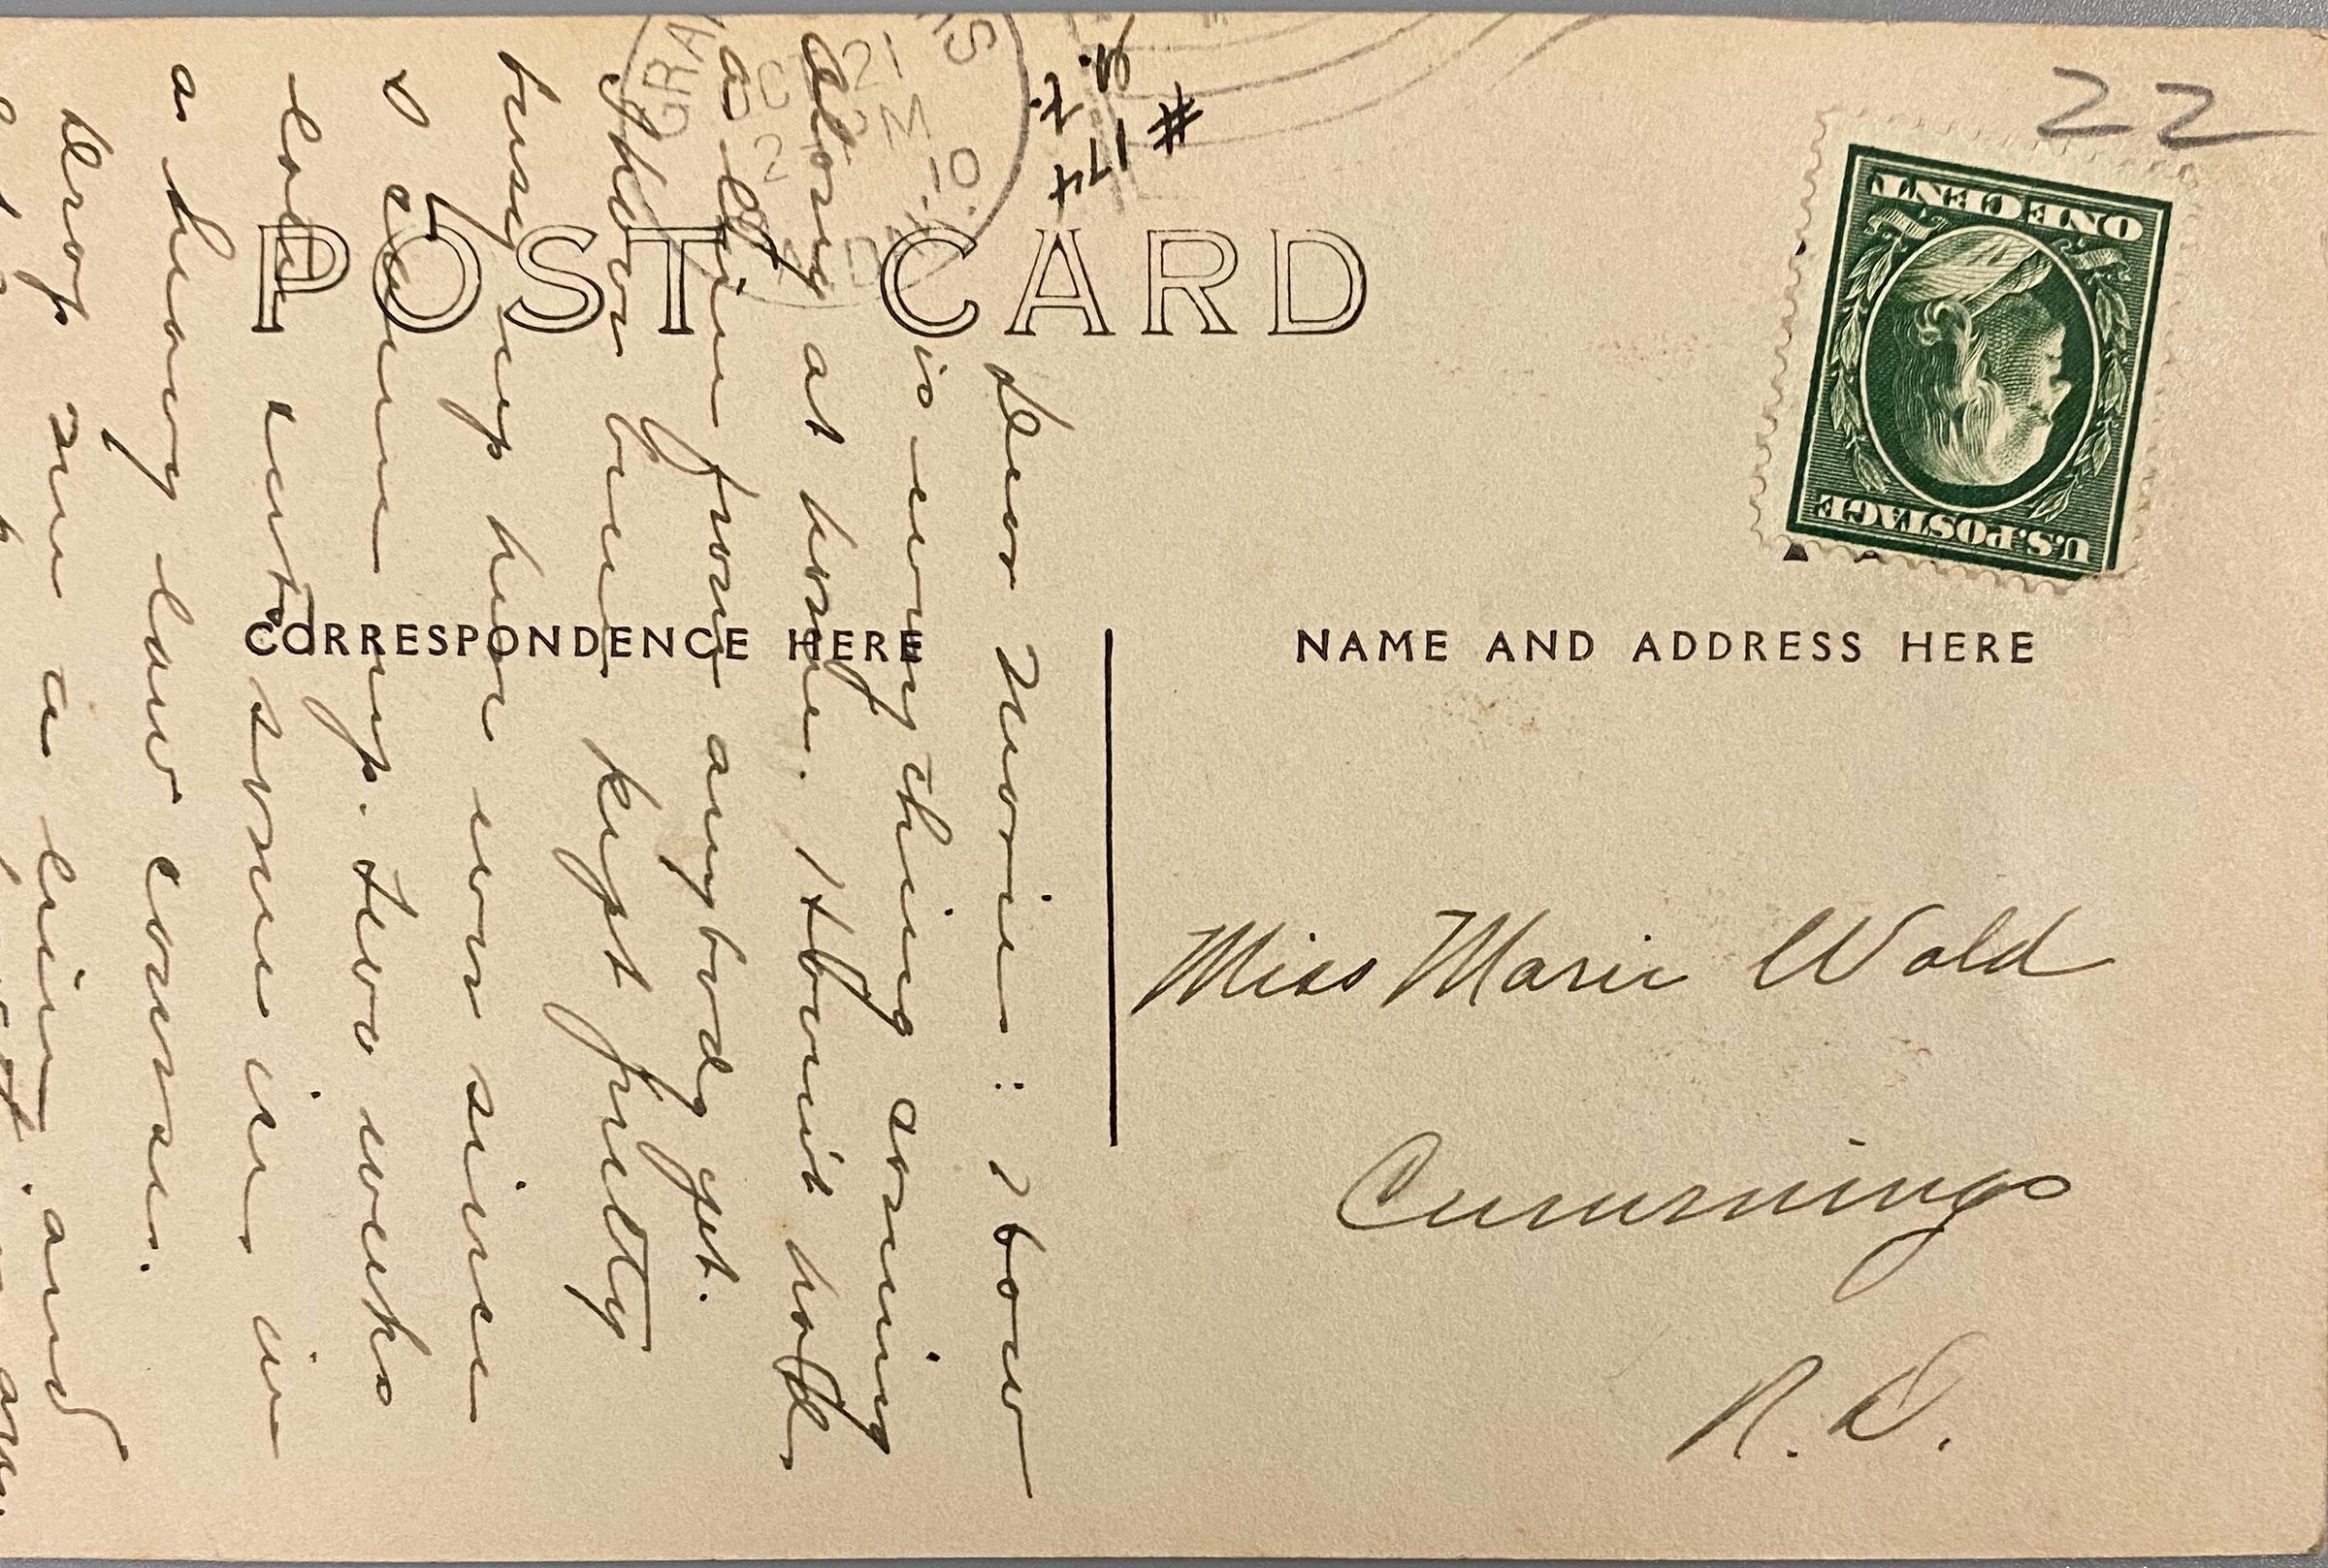 22
POST CARD
ONE CENT
U.S. POSTAGE
CORRESPONDENCE HERE
NAME AND ADDRESS HERE
Miss Marie Wold
Cummings
N. D.
GRA
OCT 21
2 M
10
Dear Marie: How
is everything coming
along at home. Haven't heard
a from anybody yet.
have been kept pretty
busy up here ever since
I came up. Two weeks
late and some in in
a heavy law course.
Drop me a line and